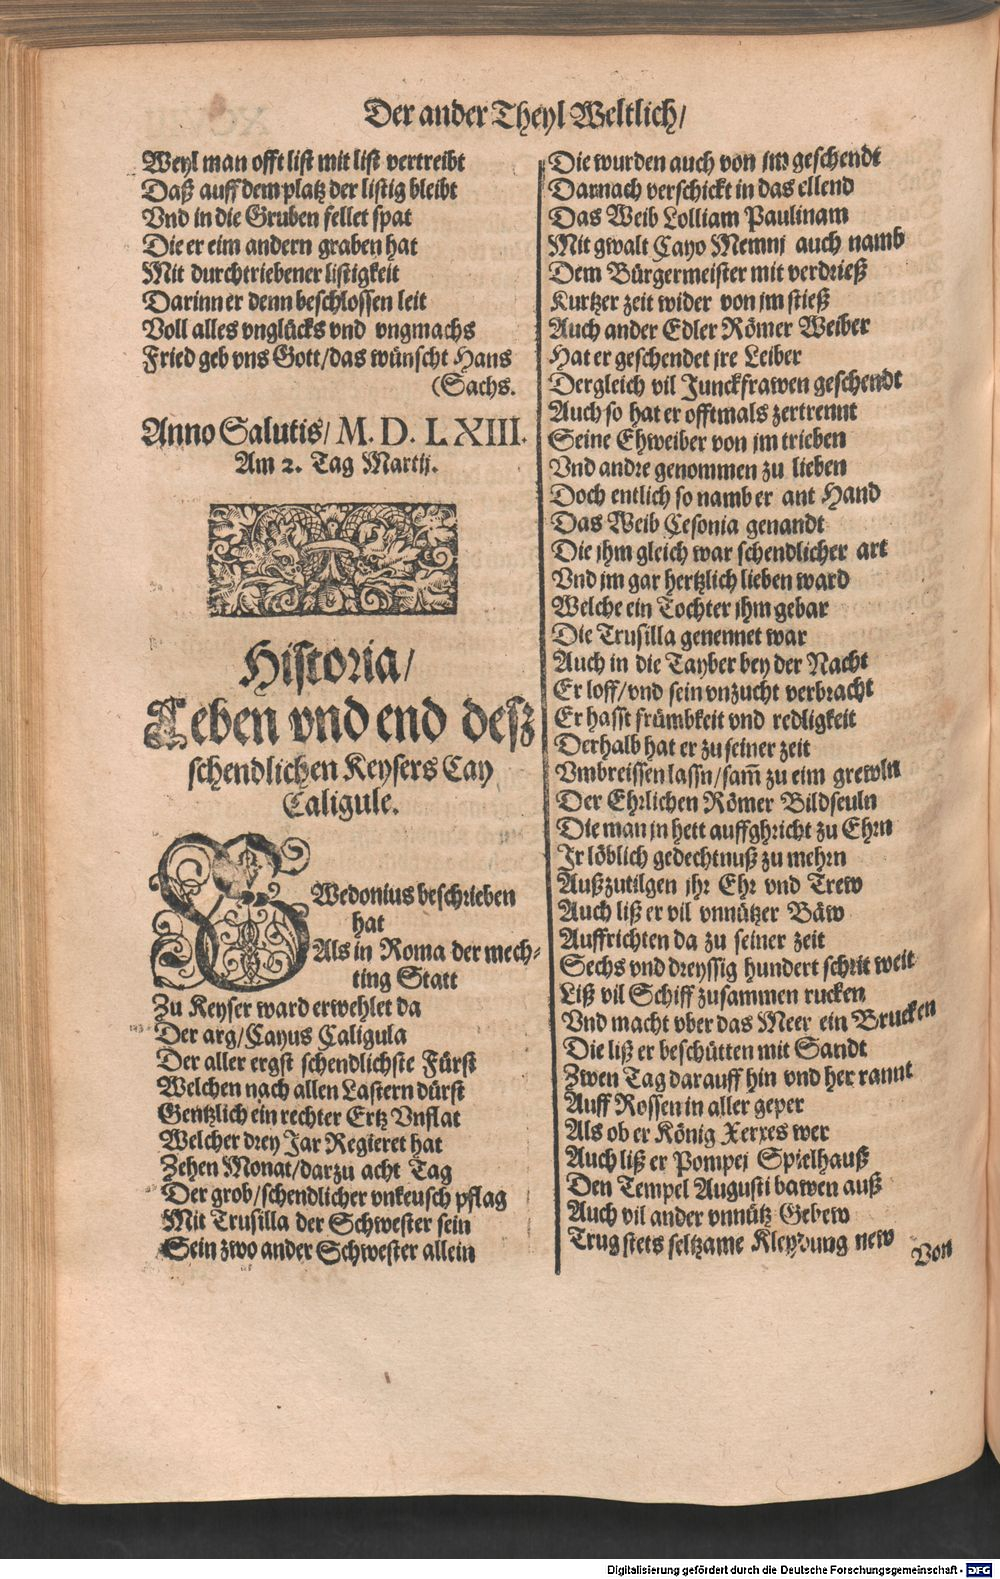 Der ander Theyl Weltlich/
Weyl man offt list mit list vertreibt
Daß auff dem platz der listig bleibt
Vnd in die Gruben fellet spat
Die er eim andern graben hat
Mit durchtriebener listigkeit
Darinn er denn beschlossen leit
Voll alles vnglücks vnd vngmachs
Fried geb vns Gott/das wünscht Hans
(Sachs.
Anno Salutis/ M. D. LXIII.
Am 2. Tag Martij.
Historia/
Leben vnd end deß
schendlichen Keysers Cay
Caligule.
SWedonius beschrieben
hat
Als in Roma der mech-
ting Statt
Zu Keyser ward erwehlet da
Der arg/Cayus Caligula
Der aller ergst schendlichste Fürst
Welchen nach allen Lastern dürst
Gentzlich ein rechter Ertz Vnflat
Welcher drey Jar Regieret hat
Zehen Monat/darzu acht Tag
Der grob/schendlicher vnkeusch pflag
Mit Trusilla der Schwester sein
Sein zwo ander Schwester allein
Die wurden auch von jm geschendt
Darnach verschickt in das ellend
Das Weib Lolliam Paulinam
Mit gwalt Cayo Memnj auch namb
Dem Bürgermeister mit verdrieß
Kurtzer zeit wider von jm stieß
Auch ander Edler Römer Weiber
Hat er geschendet jre Leiber
Dergleich vil Junckfrawen geschendt
Auch so hat er offtmals zertrennt
Seine Ehweiber von jm trieben
Vnd andre genommen zu lieben
Doch entlich so namb er ant Hand
Das Weib Cesonia genandt
Die jhm gleich war schendlicher art
Vnd jm gar hertzlich lieben ward
Welche ein Tochter jhm gebar
Die Trusilla genennet war
Auch in die Tayber bey der Nacht
Er loff/vnd sein vnzucht verbracht
Er hasst frümbkeit vnd redligkeit
Derhalb hat er zu seiner zeit
Vmbreissen lassn/sam̃ zu eim grewln
Der Ehrlichen Römer Bildseuln
Die man jn hett auffghricht zu Ehrn
Jr löblich gedechtnuß zu mehrn
Außzutilgen jhr Ehr vnd Trew
Auch liß er vil vnnützer Bäw
Auffrichten da zu seiner zeit
Sechs vnd dreyssig hundert schrit weit
Liß vil Schiff zusammen rucken
Vnd macht vber das Meer ein Brucken
Die liß er beschütten mit Sandt
Zwen Tag darauff hin vnd her rannt
Auff Rossen in aller geper
Als ob er König Xerxes wer
Auch liß er Pompej Spielhauß
Den Tempel Augusti bawen auß
Auch vil ander vnnütz Gebew
Trug stets seltzame Kleydung new
Von
Digitalisierung gefördert durch die Deutsche Forschungsgemeinschaft - DFG